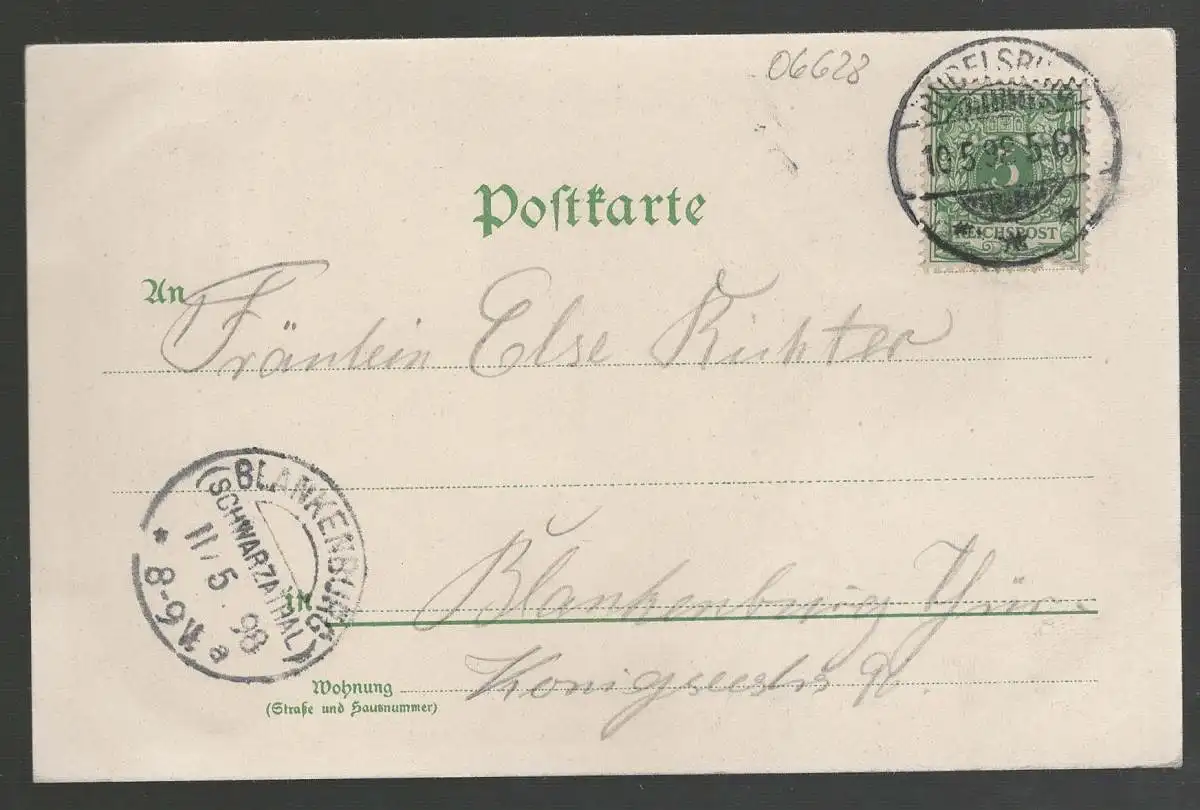 06628
RUDELSBURG
10.5.98 5-6N
5
REICHSPOST
Postkarte
An Fräulein Else Richter
BLANKENBURG
(SCHWARZATHAL)
11/5 98
8-9V. a
in Blankenburg Thür.
Wohnung
(Straße und Hausnummer)